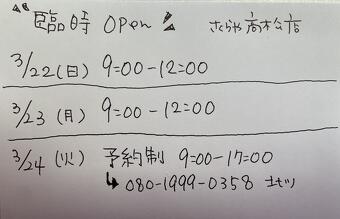 臨時 OPEN さくらや高松店
3/22(日) 9=00-12=00
3/23(月) 9=00-12=00
3/24(火) 予約制 9=00-17=00
↳ 080-1999-0358